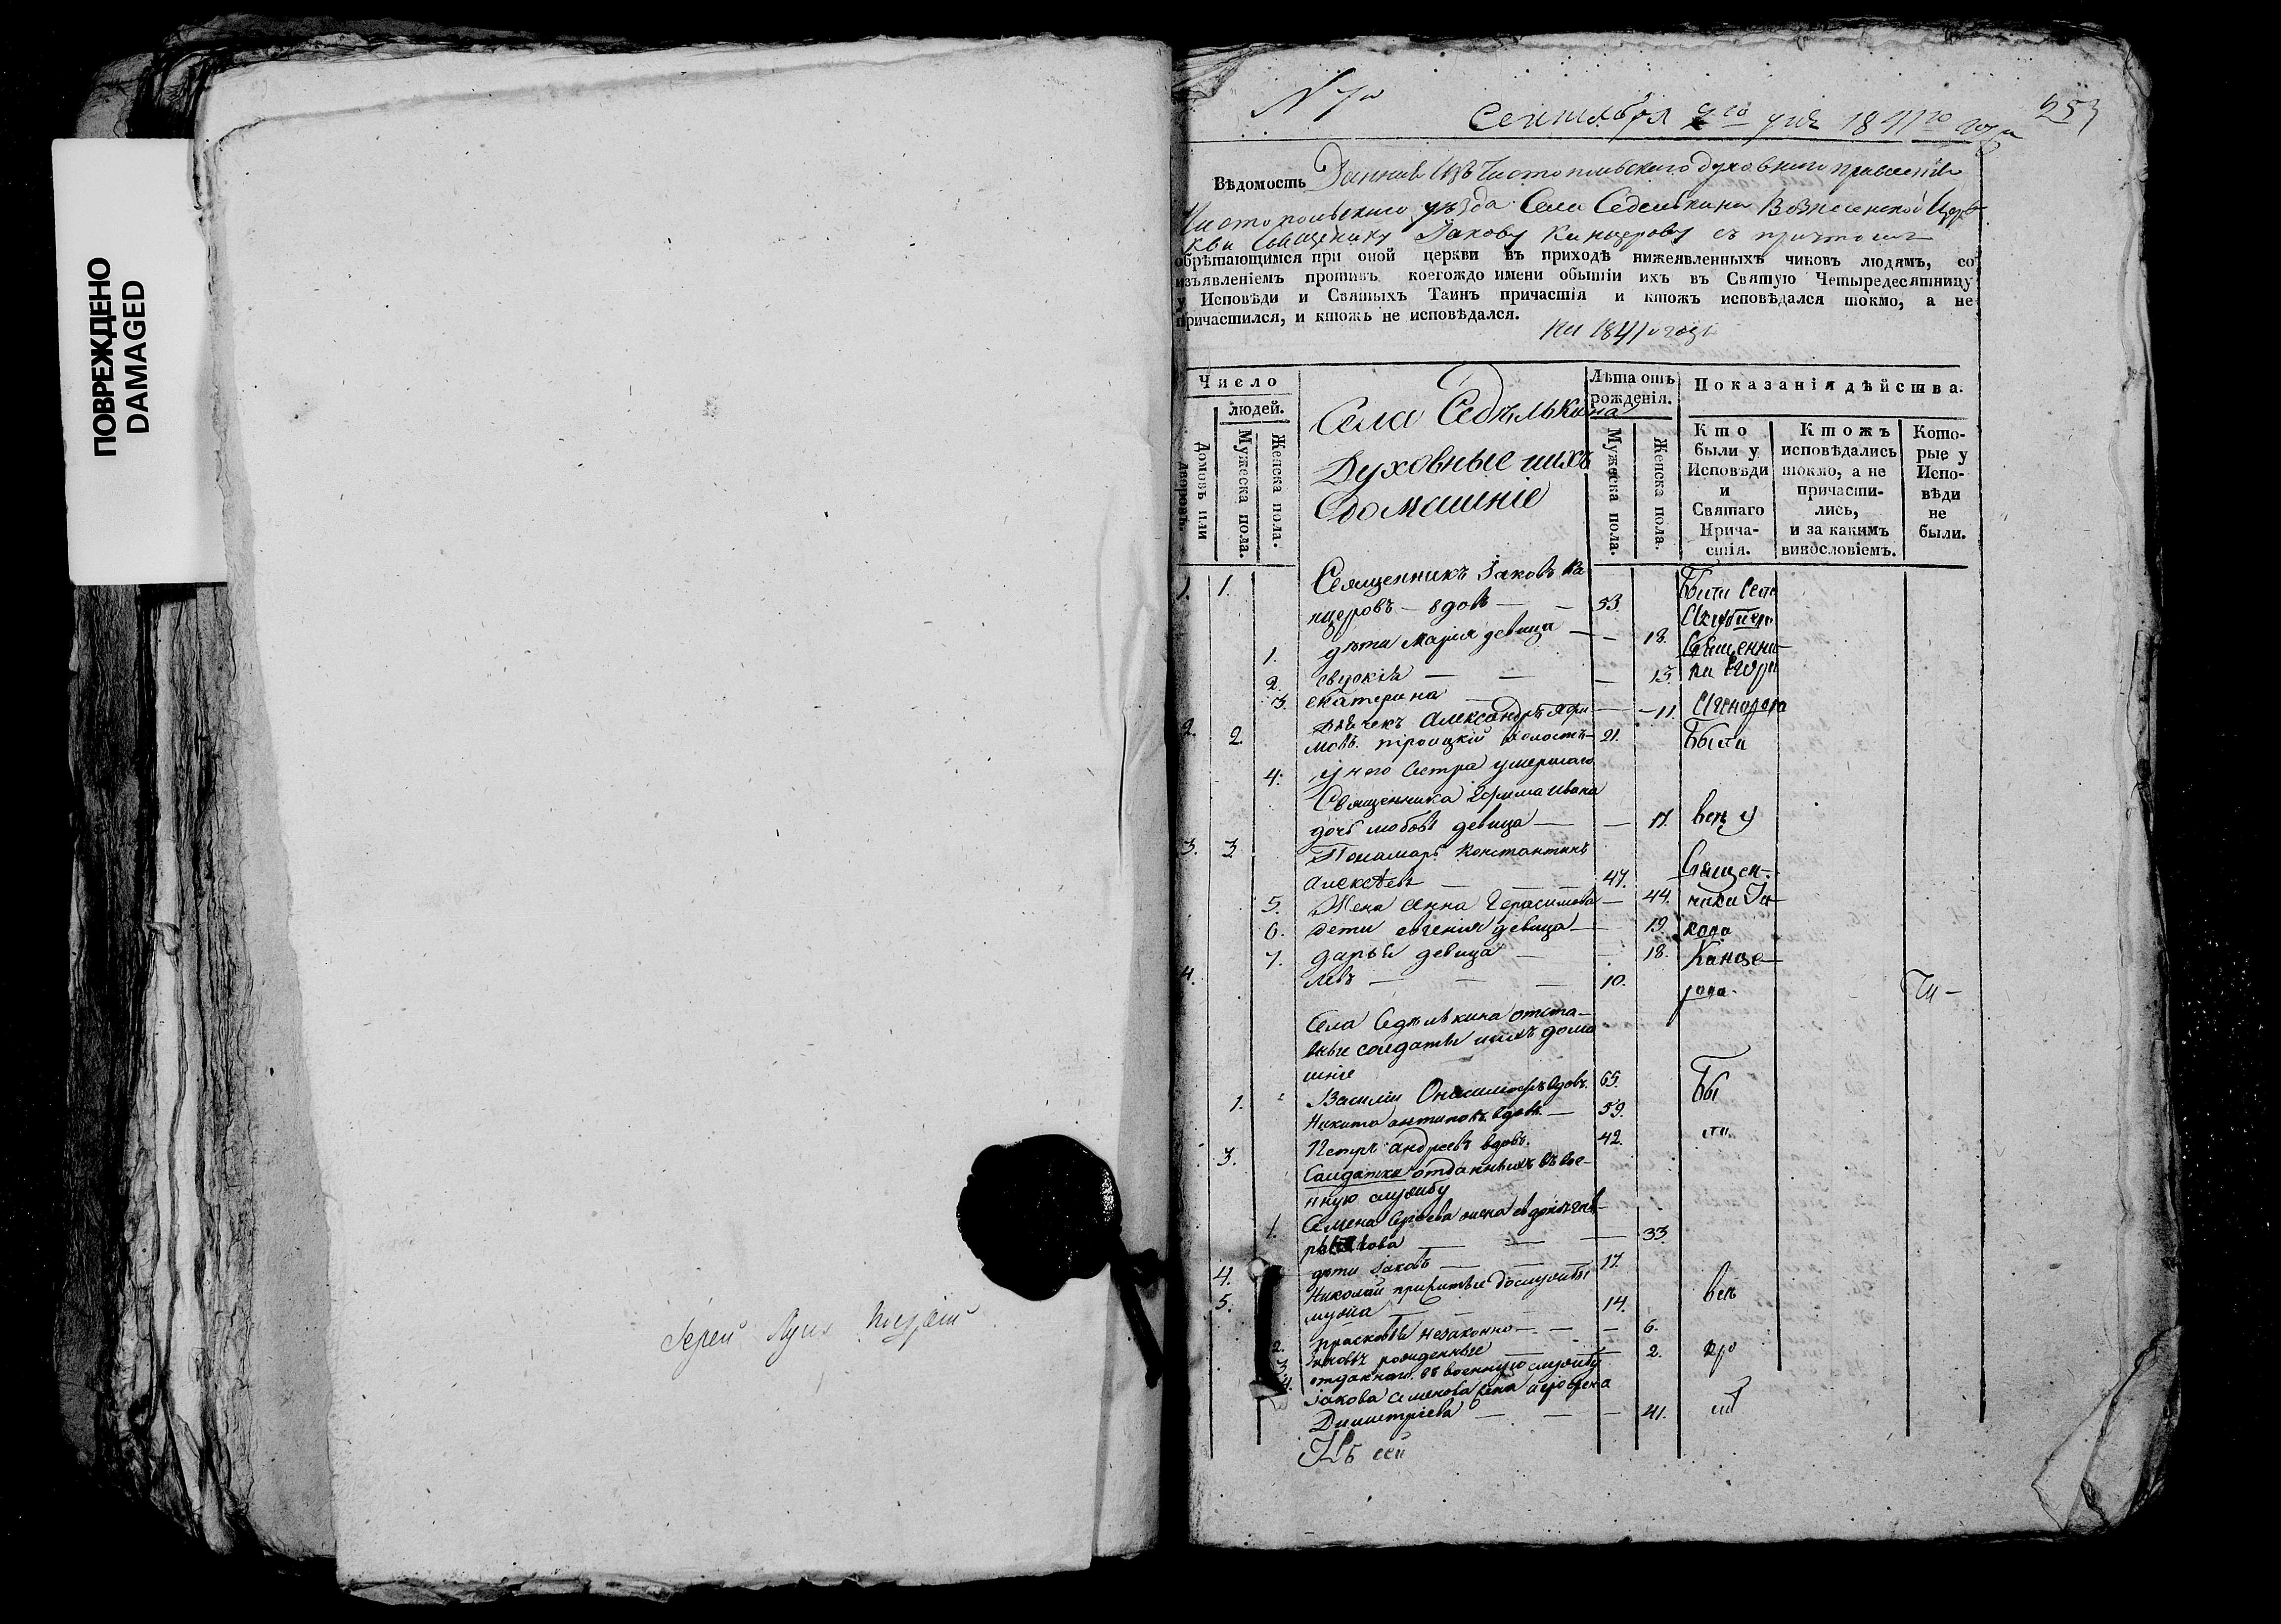 ПОВРЕЖДЕНО
DAMAGED
Іерей Лука
N 7й
Сентября 9го дня 1841го года
253
Вѣдомость Данная изъ Чистопольскаго духовнаго правленія
Чистопольскаго уѣзда Села Седелькина Вознесенской Цер-
кви Священнику Іакову Канцерову съ причтомъ
обрѣтающимся при оной церкви въ приходѣ нижеявленныхъ чиновъ людямъ, со
изъявленіемъ противъ коегождо имени обытіи ихъ въ Святую Четыредесятницу
у Исповѣди и Святыхъ Таинъ причастія и ктожъ исповѣдался токмо, а не
причастился, и ктожъ не исповѣдался.
на 1841 годъ
Число
людей.
Домовъ или дворовъ.
Мужеска пола.
Женска пола.
Села Седѣлькина
Духовные ихъ
домашніе
Лѣта отъ
рожденія.
Мужеска пола.
Женска пола.
Показанія дѣйства.
Кто
были у
Исповѣди
и
Святаго
Прича-
стія.
Ктожъ
исповѣдались
токмо, а не
причасти-
лись,
и за какимъ
винословіемъ.
Кото-
рые у
Испо-
вѣди
не
были.
1. 1. Священникъ Іаковъ Ка
нцеровъ — вдовъ — — 53. Были
1. дѣти Марія девица — — 18. Священни-
2. евдокія — — — 13. ка
3. екатерина — — — 11.
2. 2. Дьячекъ Александръ
троицкій холостъ — 21. Были
4. у него Сестра умершаго
Священника Ефима Ивана
дочь любовь девица — — 17. всѣ у
3. 3. Пономарь Константинъ
Алексѣевъ — — — 47. Священ-
5. Жена Анна Герасимова — 44. ника Іа-
6. дети евгенія девица — 19. кова
7. дарья девица — — 18. Канце-
4. Левъ — — — 10. рова.
Села Седѣлькина отста-
вные солдаты ихъ дома
шніе
1. Василіи Онисимовъ вдовъ. 65. Бы
Никита антиповъ вдовъ — 59.
3. Петръ андреевъ вдовъ. 42. ли
Солдатки отданныхъ въ вое-
нную службу
1. Семена жена
— — — 33.
4. дѣти Іаковъ — — — 17.
5. Николай
мужа — — — 14. всѣ
2. прасковья незаконно — — — 6.
3. рожденные — — 2. ко
4. отданнаго въ военную службу
Іакова Семенова жена
Димитріева — — — 41.